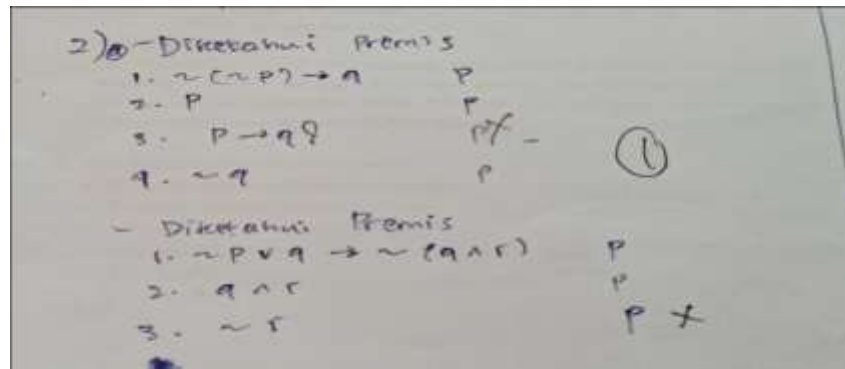 2) a - Diketahui Premis
1. ~(~P) → q P
2. P P
3. P → q? P
4. ~q P
1
- Diketahui Premis
1. ~P v q → ~(q ∧ r) P
2. q ∧ r P
3. ~r P x